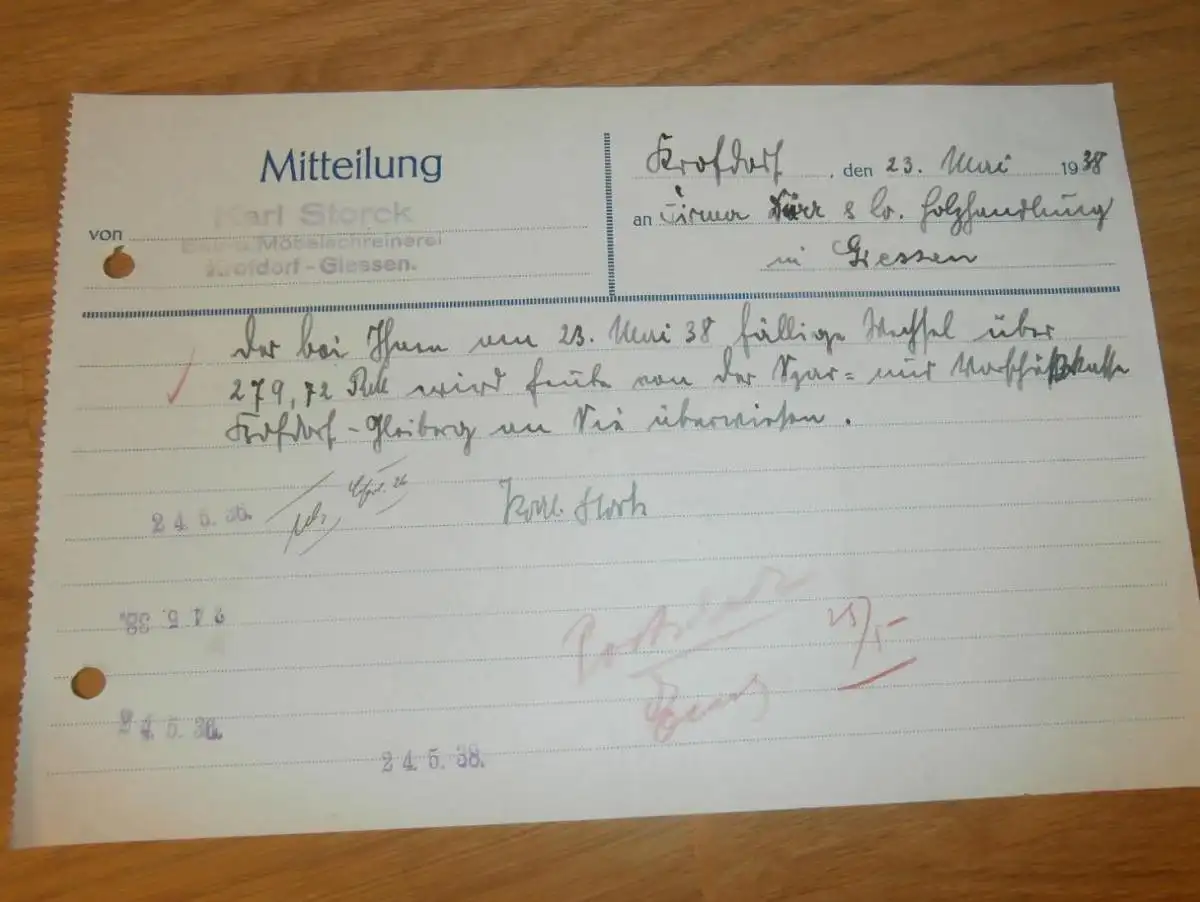 Mitteilung
von
Karl Storck
Bau- u. Möbelschreinerei
Krofdorf - Giessen.
Krofdorf, den 23. Mai 1938
an Firma & Co. Holzhandlung
in Giessen
Der bei Ihnen am 23. Mai 38 fällige Wechsel über
279,72 RM wird heute von der Spar= und Vorschußkasse
Krofdorf-Gleiberg an Sie überwiesen.
24.5.38.
Karl Storck
24.5.38.
25/5
24.5.38.
24.5.38.